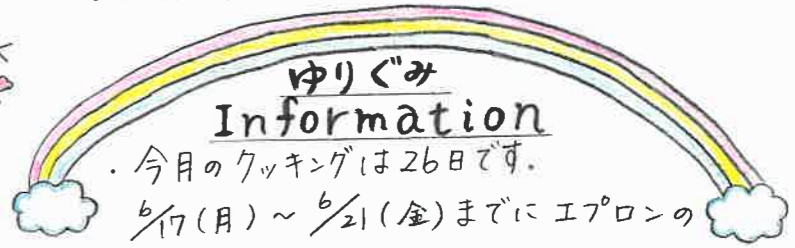 ゆりぐみ
Information
・今月のクッキングは26日です.
6/17(月)~6/21(金)までに エプロンの